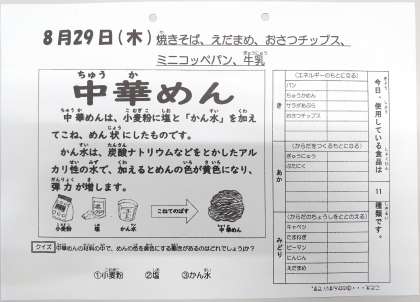 8月29日(木) 焼きそば、えだまめ、おさつチップス、
ミニコッペパン、牛乳
中華めん
中華めんは、小麦粉に塩と「かん水」を加え
てこね、めん状にしたものです。
かん水は、炭酸ナトリウムなどをとかしたアルカ
リ性の水で、加えるとめんの色が黄色になり、
弾力が増します。
小麦粉
塩
かん水
こねてのばす
中華めん
クイズ 中華めんの材料の中で、めんの色を黄色にする働きがあるのはどれでしょうか?
①小麦粉 ②塩 ③かん水
今日、使用している食品は
11
種類です。
き
(エネルギーのもとになる)
パン
ちゅうかめん
サラダあぶら
おさつチップス
あか
(からだをつくるもとになる)
ぎゅうにゅう
ぶたにく
みどり
(からだのちょうしをととのえる)
キャベツ
たまねぎ
ピーマン
にんじん
えだまめ